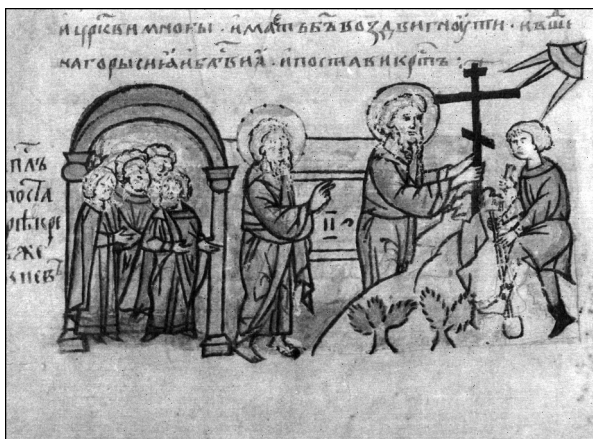 и цр҃кви многы · имать бъ҃ воздвигноути · и въше
на горы сиꙗ и бл҃ви ꙗ · и постави крт҃ъ :
п҃лъ
поста
же
киевъ